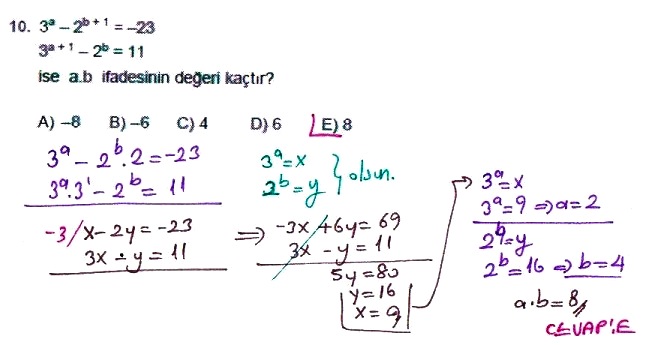 10. 3ᵃ – 2ᵇ⁺¹ = –23
3ᵃ⁺¹ – 2ᵇ = 11
ise a.b ifadesinin değeri kaçtır?
A) –8 B) –6 C) 4 D) 6 E) 8
3ᵃ – 2ᵇ.2 = –23
3ᵃ.3¹ – 2ᵇ = 11
-3/ x – 2y = –23
3x – y = 11
3ᵃ = x
2ᵇ = y } olsun.
⇒ –3x + 6y = 69
3x – y = 11
5y = 80
y = 16
x = 9
→ 3ᵃ = x
3ᵃ = 9 ⇒ a = 2
2ᵇ = y
2ᵇ = 16 ⇒ b = 4
a.b = 8
CEVAP:E